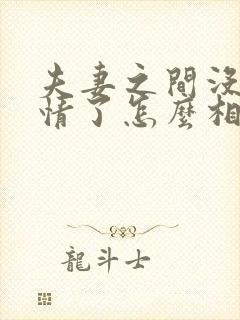 夫妻之間沒
情了怎麼相
龍斗士